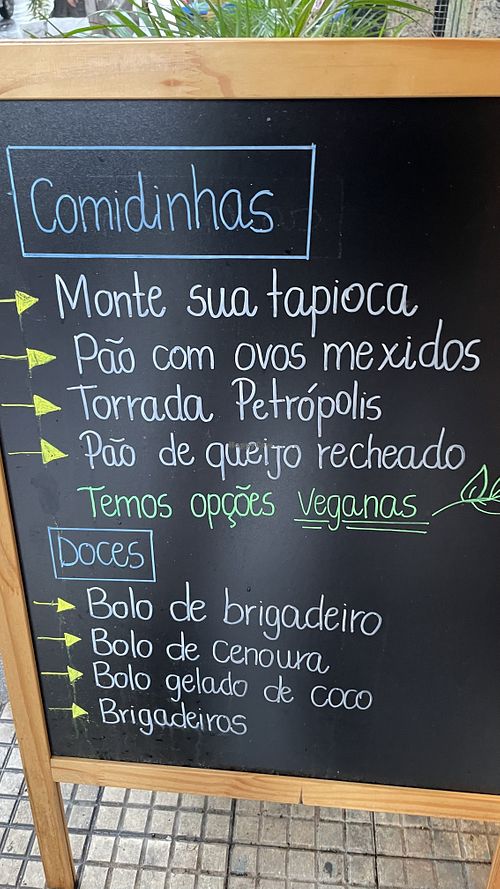 Comidinhas
Monte sua tapioca
Pão com ovos mexidos
Torrada Petrópolis
Pão de queijo recheado
Temos opções veganas
Doces
Bolo de brigadeiro
Bolo de cenoura
Bolo gelado de coco
Brigadeiros